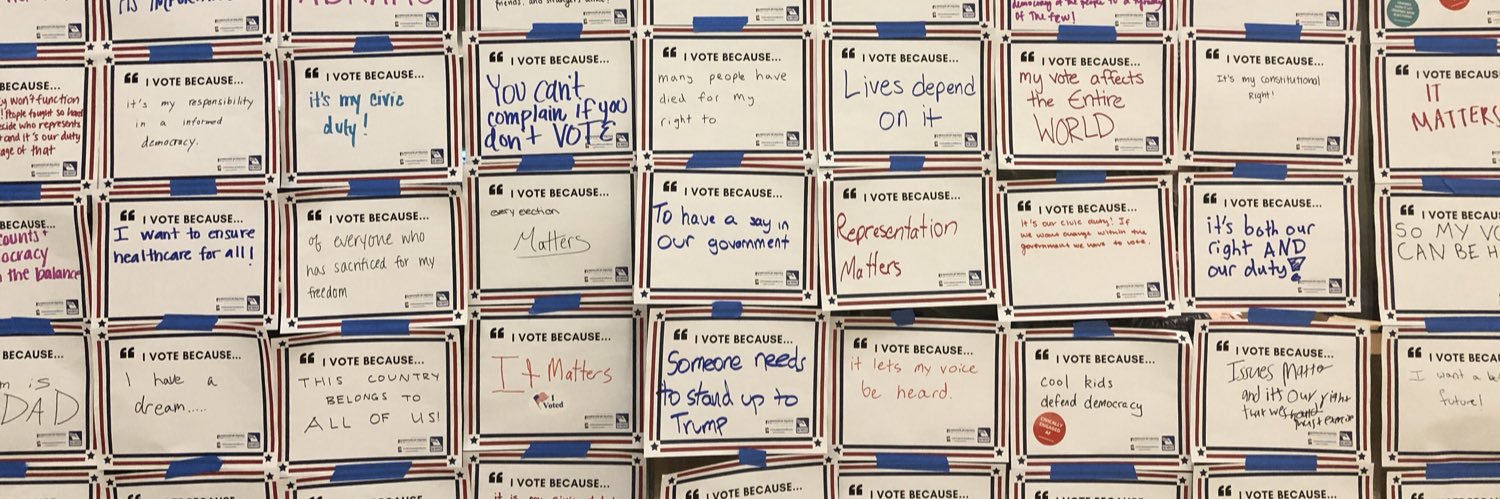 friends, and strangers alike!
of the few!
BECAUSE...
won't function
people fought so hard
decide who represents
and it's our duty
age of that
❝ I VOTE BECAUSE...
it's my responsibility
in a informed
democracy.
❝ I VOTE BECAUSE...
it's my civic
duty!
❝ I VOTE BECAUSE...
You can't
complain if you
don't VOTE
❝ I VOTE BECAUSE...
many people have
died for my
right to
❝ I VOTE BECAUSE...
Lives depend
on it
❝ I VOTE BECAUSE...
my vote affects
the Entire
WORLD
❝ I VOTE BECAUSE...
It's my constitutional
Right!
❝ I VOTE BECAUS
IT
MATTERS
BECAUSE...
ocracy
the balance
❝ I VOTE BECAUSE...
I want to ensure
healthcare for all!
❝ I VOTE BECAUSE...
of everyone who
has sacrificed for my
freedom
❝ I VOTE BECAUSE...
every election
Matters
❝ I VOTE BECAUSE...
To have a say in
our government
❝ I VOTE BECAUSE...
Representation
Matters
❝ I VOTE BECAUSE...
It's our civic duty! If
we want change within the
government we have to vote.
❝ I VOTE BECAUSE...
it's both our
right AND
our duty!
❝ I VOTE BECAUS
SO MY VO
CAN BE H
BECAUSE...
is
DAD
❝ I VOTE BECAUSE...
I have a
dream.....
❝ I VOTE BECAUSE...
THIS COUNTRY
BELONGS TO
ALL OF US!
❝ I VOTE BECAUSE...
It Matters
I Voted
❝ I VOTE BECAUSE...
Someone needs
to stand up to
Trump
❝ I VOTE BECAUSE...
it lets my voice
be heard.
❝ I VOTE BECAUSE...
cool kids
defend democracy
❝ I VOTE BECAUSE...
Issues Matter
and it's our right
that we must exercise
❝ I VOTE BECAU
I want a be
future!
❝ I VOTE BECAUSE...
❝ I VOTE BECAUSE...
❝ I VOTE BECAUSE...
❝ I VOTE BECAUSE...
❝ I VOTE BECAUSE...
❝ I VOTE BECAUSE...
❝ I VOTE BECAUSE...